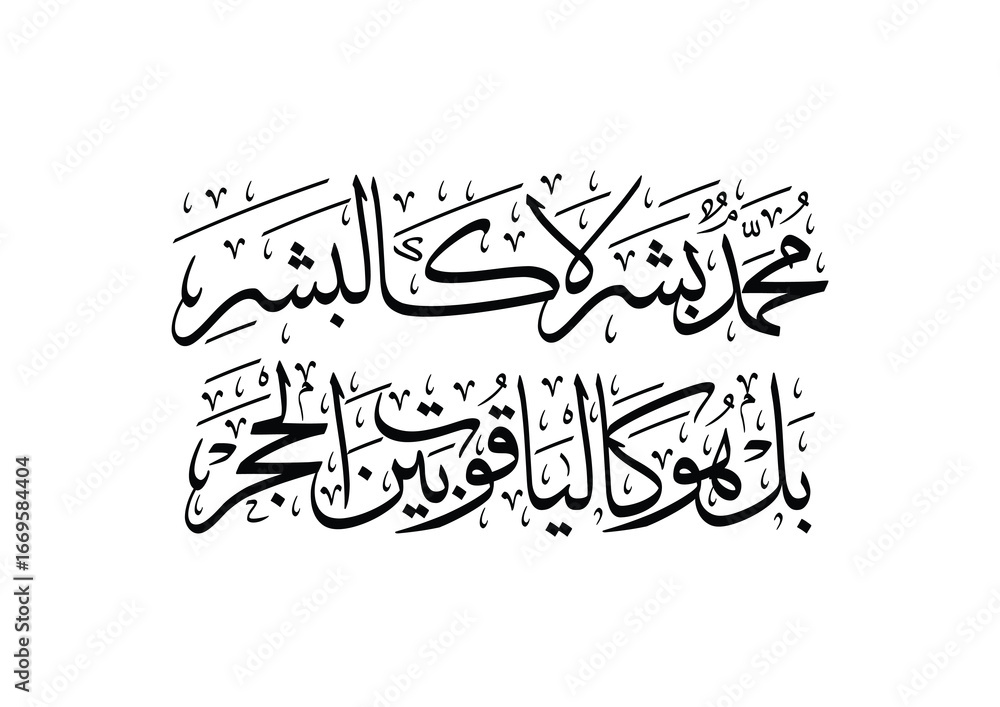 محمد بشر لا كالبشر
بل هو كالياقوت بين الحجر
Adobe Stock | #1669584404